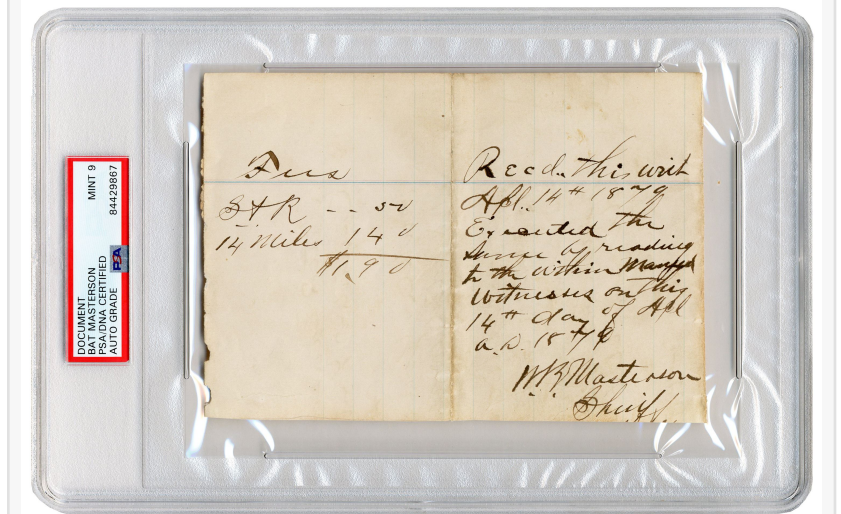 DOCUMENT
BAT MASTERSON
PSA/DNA CERTIFIED
AUTO GRADE
MINT 9
84429867
PSA
Fees
S & R - - 50
14 Miles 1 40
$1.90
Recd. this writ
Apl. 14th 1879
Executed the
same by reading
to the within named
witnesses on this
14th day of Apl
A.D. 1879
W.B. Masterson
Sheriff